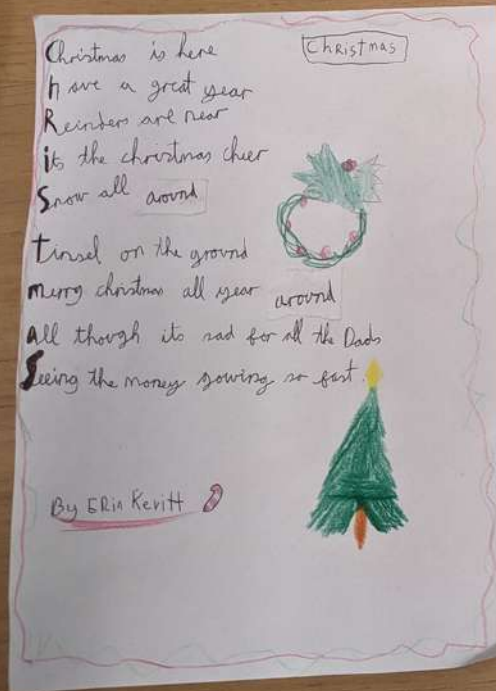 Christmas
Christmas is here
have a great year
Reinders are near
its the christmas cheer
Snow all around
tinsel on the ground
merry christmas all year around
all though its sad for all the Dads
Seeing the money gowing so fast.
By ERin Kevitt